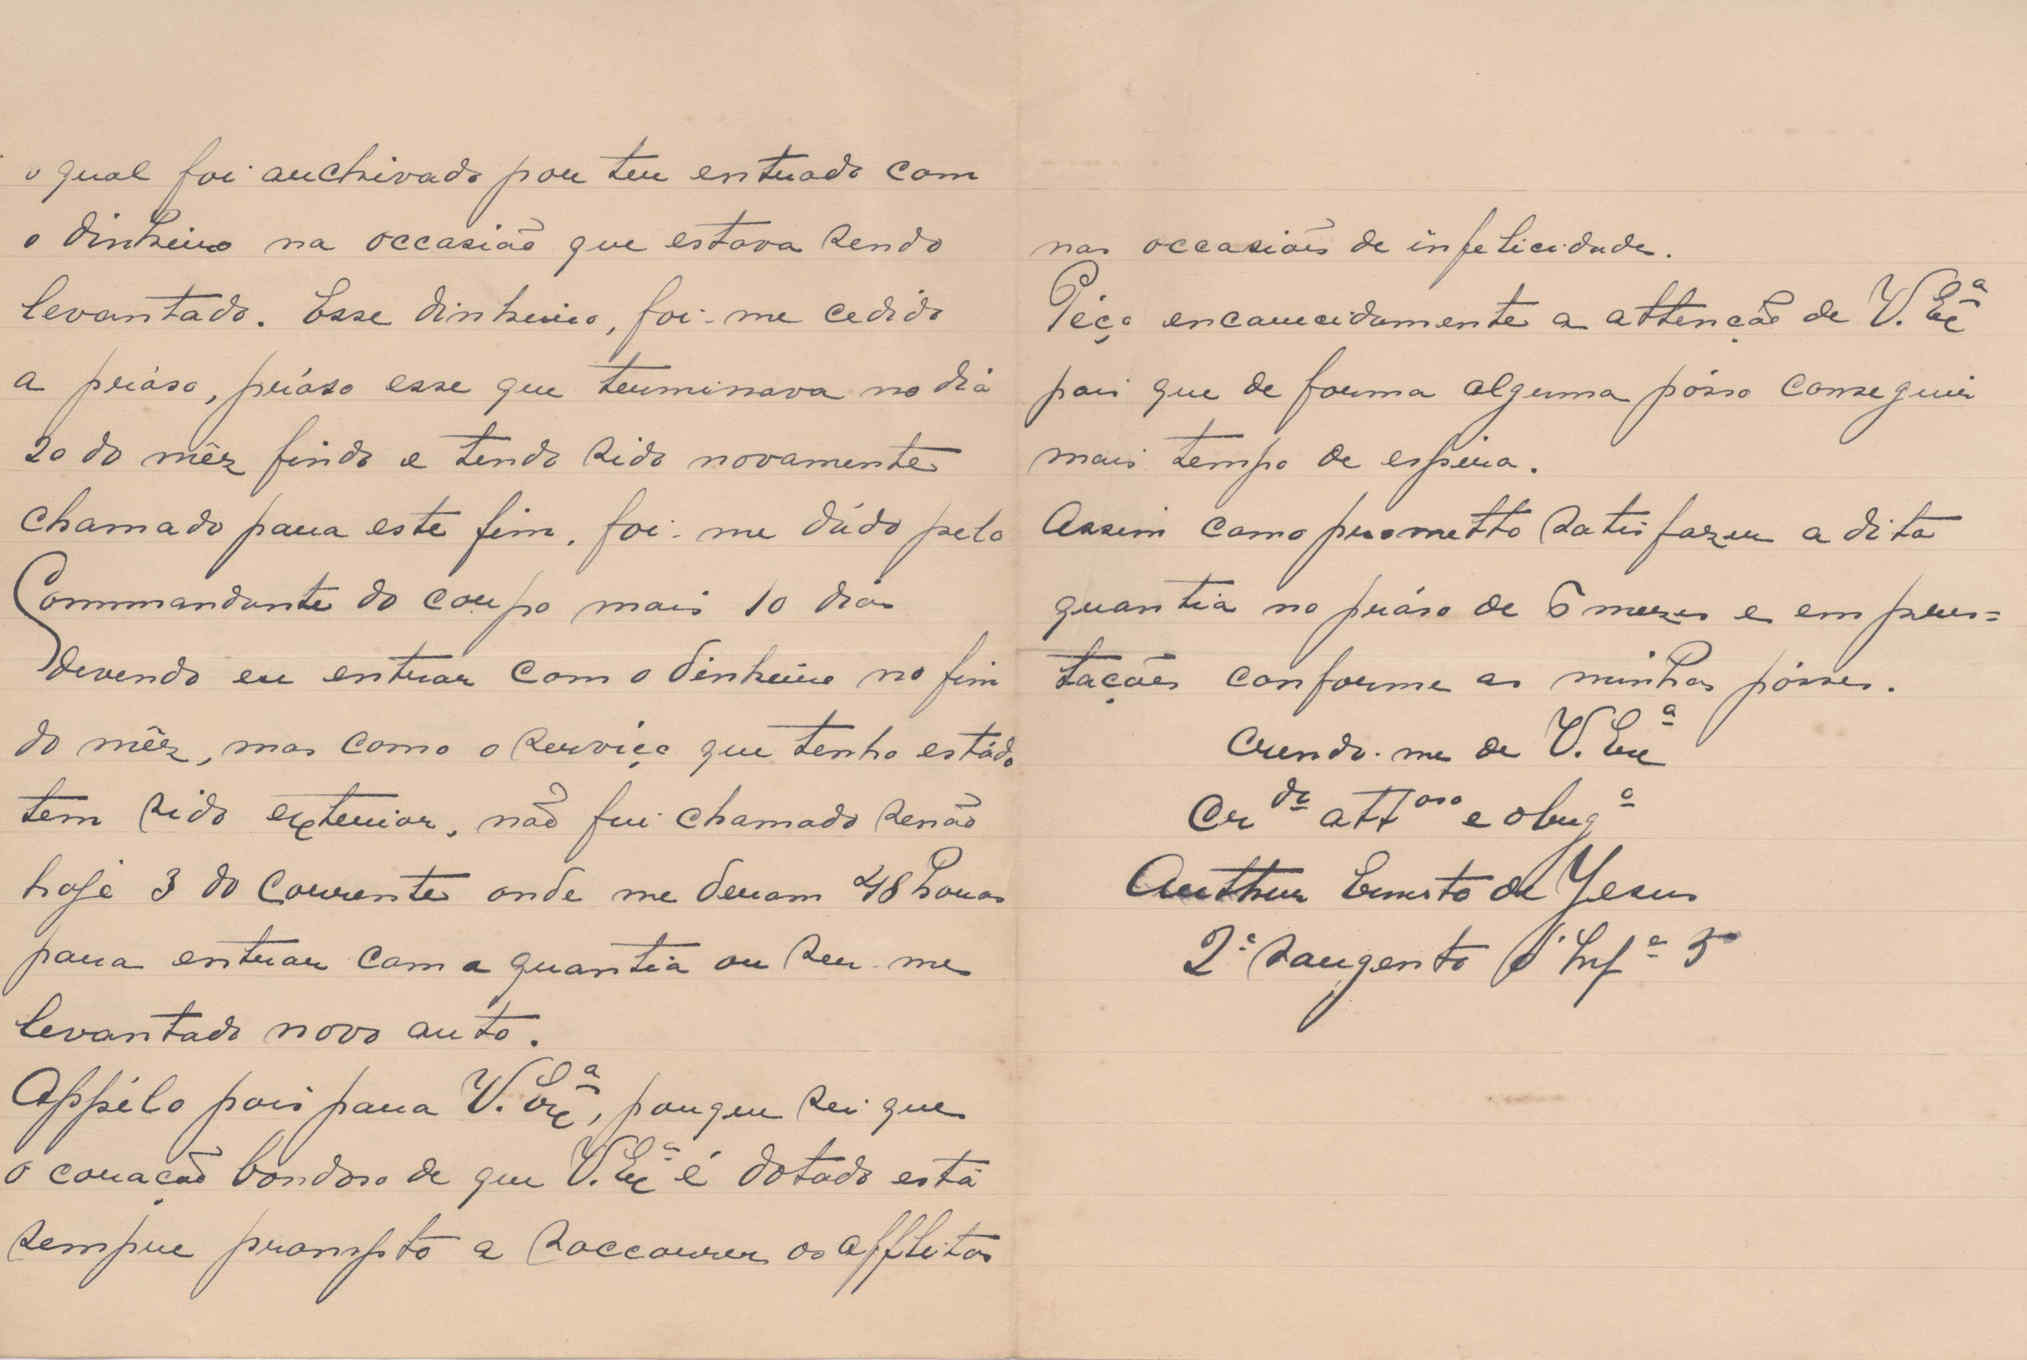 o qual foi archivado por ter entrado com
o dinheiro na occasião que estava sendo
levantado. Esse dinheiro, foi-me cedido
a práso, práso esse que terminava no dia
20 do mêz findo e tendo sido novamente
chamado para este fim, foi-me dádo pelo
Commandante do corpo mais 10 dias
devendo eu entrar com o dinheiro no fim
do mêz, mas como o serviço que tenho estádo
tem sido exterior, não fui chamado senão
hoje 3 do corrente onde me deram 48 horas
para entrar com a quantia ou ser-me
levantado novo auto.
Appélo pois para V. Exª, porque sei que
o coração bondoso de que V. Exª é dotado está
sempre prompto a soccorrer os afflitos
nas occasiões de infelicidade.
Péço encarecidamente a attenção de V. Exª
pois que de forma alguma pósso conseguir
mais tempo de espera.
Assim como prometto satisfazer a dita
quantia no práso de 6 mezes e em pres=
tações conforme as minhas pósses.
Crendo-me de V. Exª
Crdº attoso e obrgº
Arthur Ernesto de Jesus
2º sargento d'Infª 5